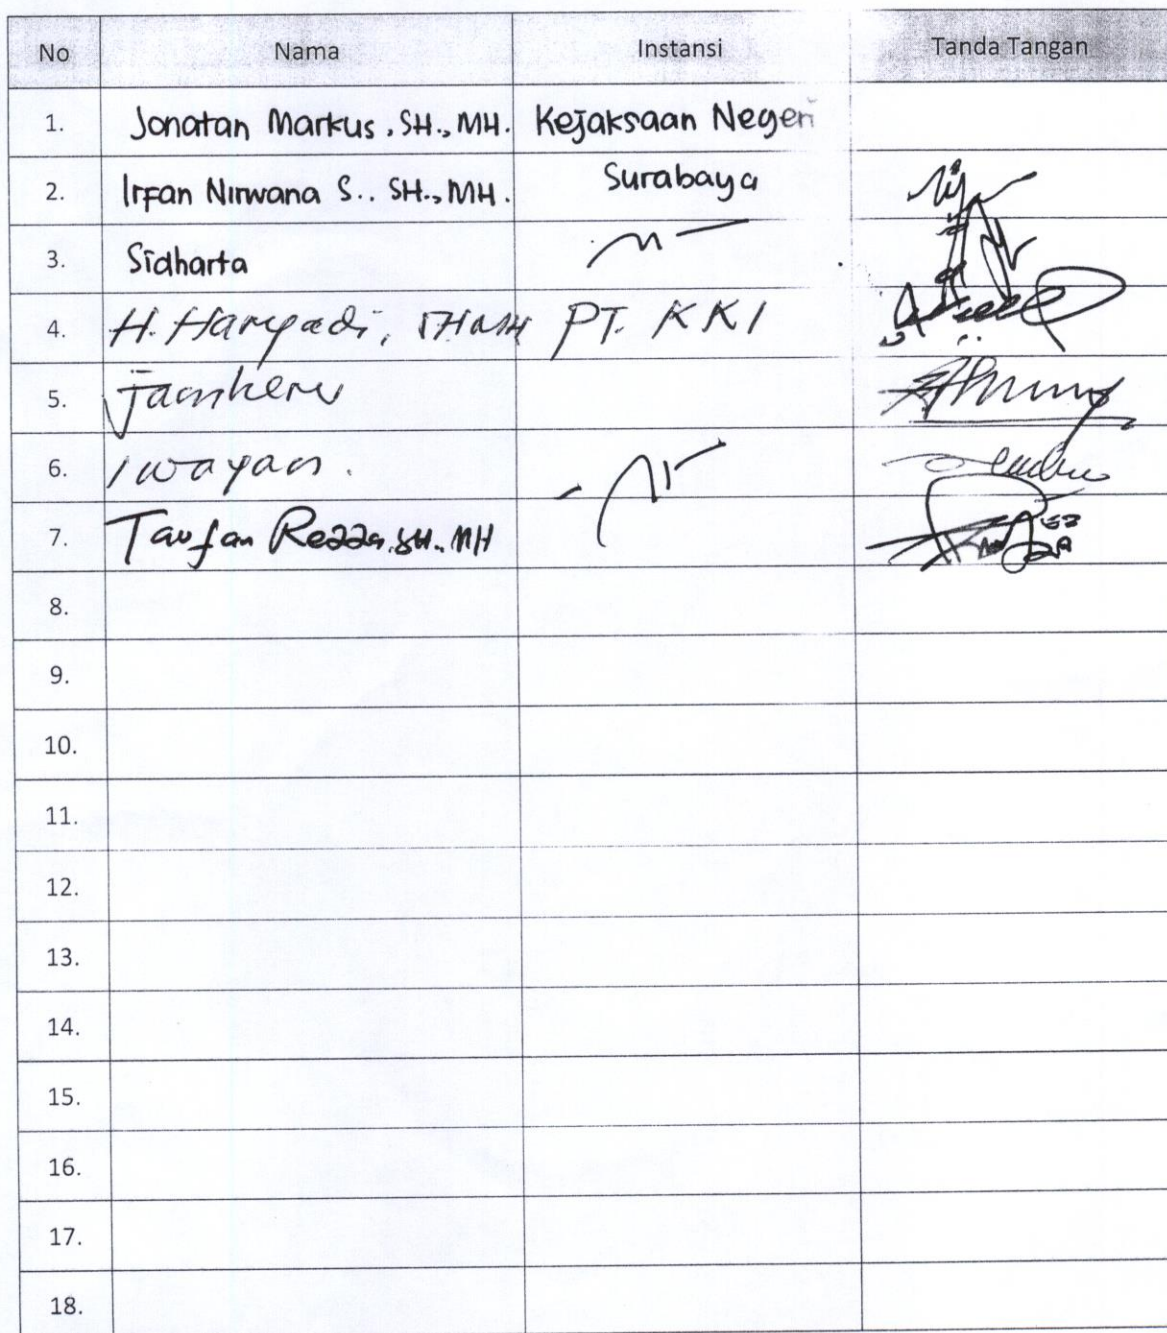 No Nama Instansi Tanda Tangan
1. Jonatan Markus, SH., MH. Kejaksaan Negeri
2. Irfan Nirwana S.. SH., MH. Surabaya
3. Sidharta
4. H. Haryadi, SH MH PT. KKI
5.
6. I wayan.
7. Taufan Rezza, SH., MH
8.
9.
10.
11.
12.
13.
14.
15.
16.
17.
18.